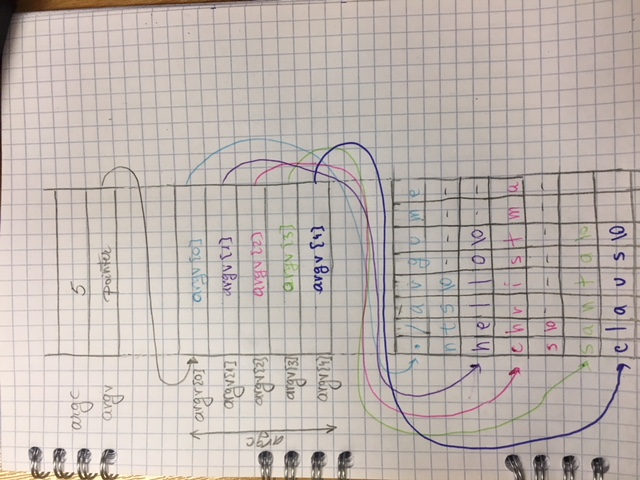 argc 5
argv pointer
argv[0] argv[0]
argv[1] argv[1]
argv[2] argv[2]
argv[3] argv[3]
argv[4] argv[4]
argc
. / a r g u m e
n t s \0 - - - -
h e l l o \0 - -
c h r i s t m a
s \0 - - - - -
s a n t a \0
c l a u s \0